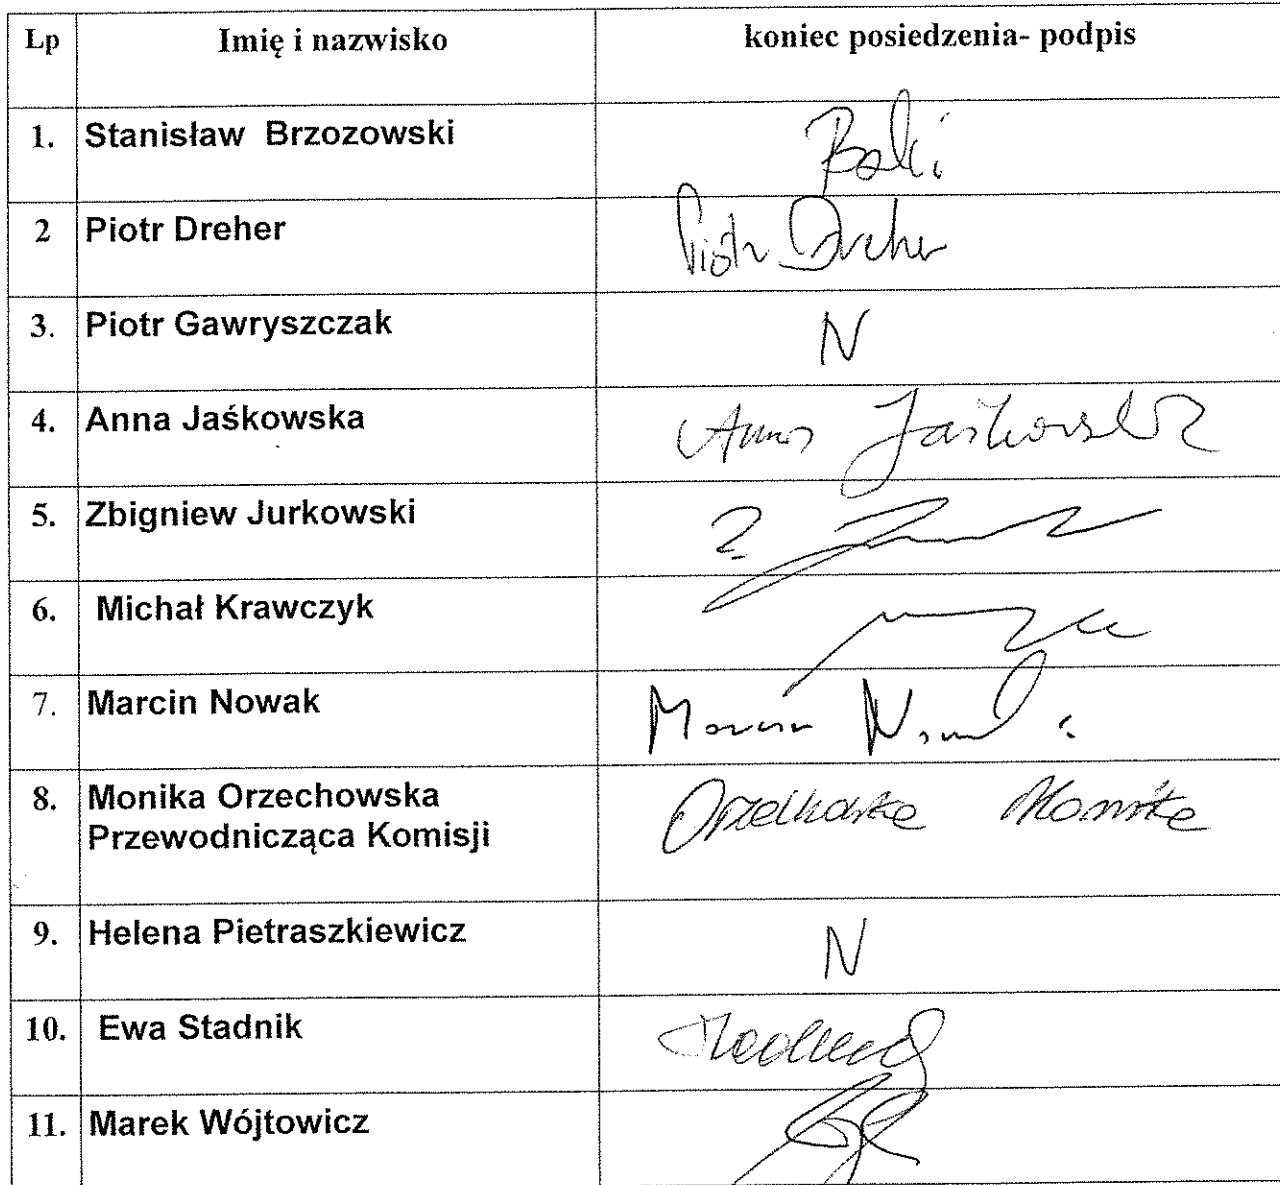 Lp Imię i nazwisko koniec posiedzenia- podpis
1. Stanisław Brzozowski
2 Piotr Dreher Piotr Dreher
3. Piotr Gawryszczak N
4. Anna Jaśkowska Anna Jaśkowska
5. Zbigniew Jurkowski
6. Michał Krawczyk
7. Marcin Nowak Marcin Nowak
8. Monika Orzechowska Orzechowska Monika
Przewodnicząca Komisji
9. Helena Pietraszkiewicz N
10. Ewa Stadnik
11. Marek Wójtowicz